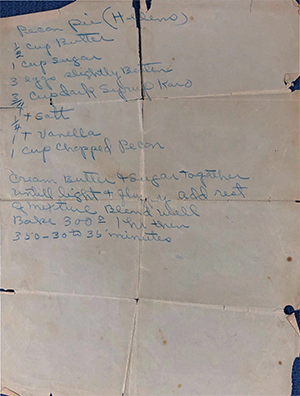 Pecan Pie (Helens).
1/2 cup Butter
1 cup sugar
3 eggs slightly Beaten
3/4 cup dark Syrup Karo
1/4 t Salt
1 t Vanella
1 cup Chopped Pecan
Cream Butter & Sugar together
untill light & add rest
of mixture Blend well
Bake 300° 1 hr then
350-30 to 35 minutes